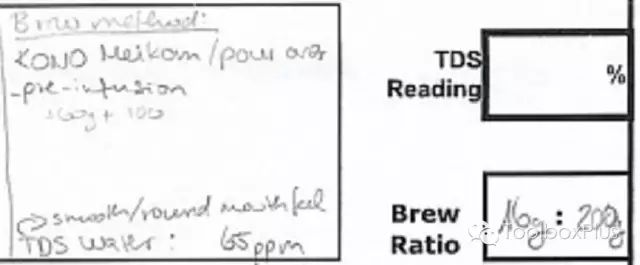 Brew method:
KONO Meikan/pour over
-pre-infusion
smooth/round mouthfeel
TDS water: 65ppm
TDS
Reading
%
Brew
Ratio
16g : 200g
ToolboxPlus